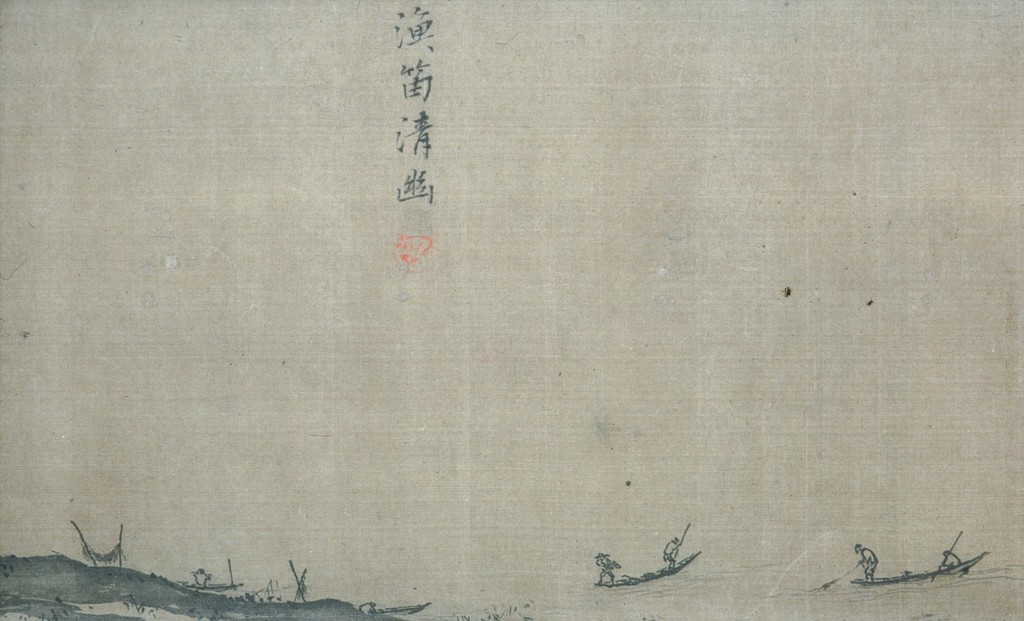 漁笛清幽